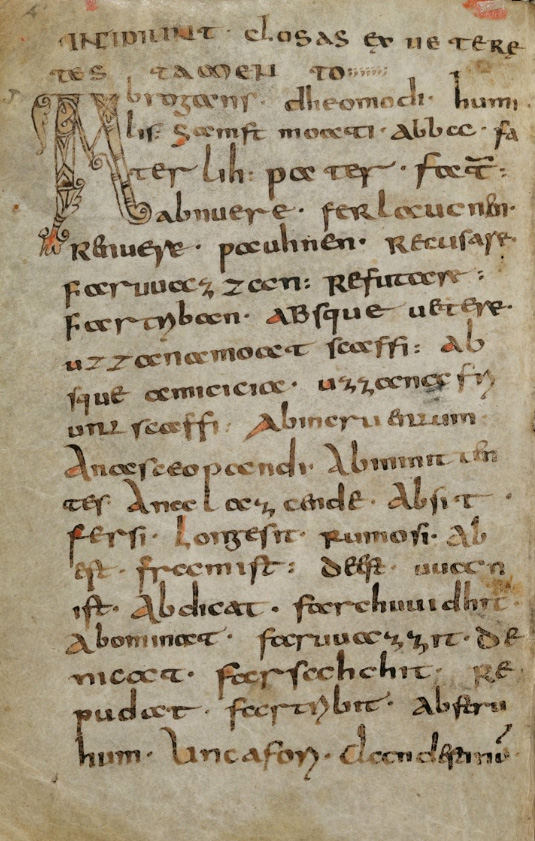 INCIPIUNT · closas ex uetere
tes tamen to
Abrogans · dheomodi · humi
lis: samft moati · abba · fa
ter lih: pater · fact̄:
abnuere · ferlaucnen ·
Renuere · pauhnen · Recusare ·
faruuazzan: Refutare:
fartriban · absque uetere ·
uzzana moat scaffi: Ab
sque amicicia · uzzana fri
unt scaffi · Abincruentum
Anascaopandi · Abminit en
tes Anauuazende · Absit ·
fersi · Longesit · rumosi · Ab
est · framist: deest · uuan
ist · Abdicat · farchuuidhit ·
Abominat · faruuazzit · de
nicat · farsechchit · Re
pudat · fartribit · Abstru
hum ·